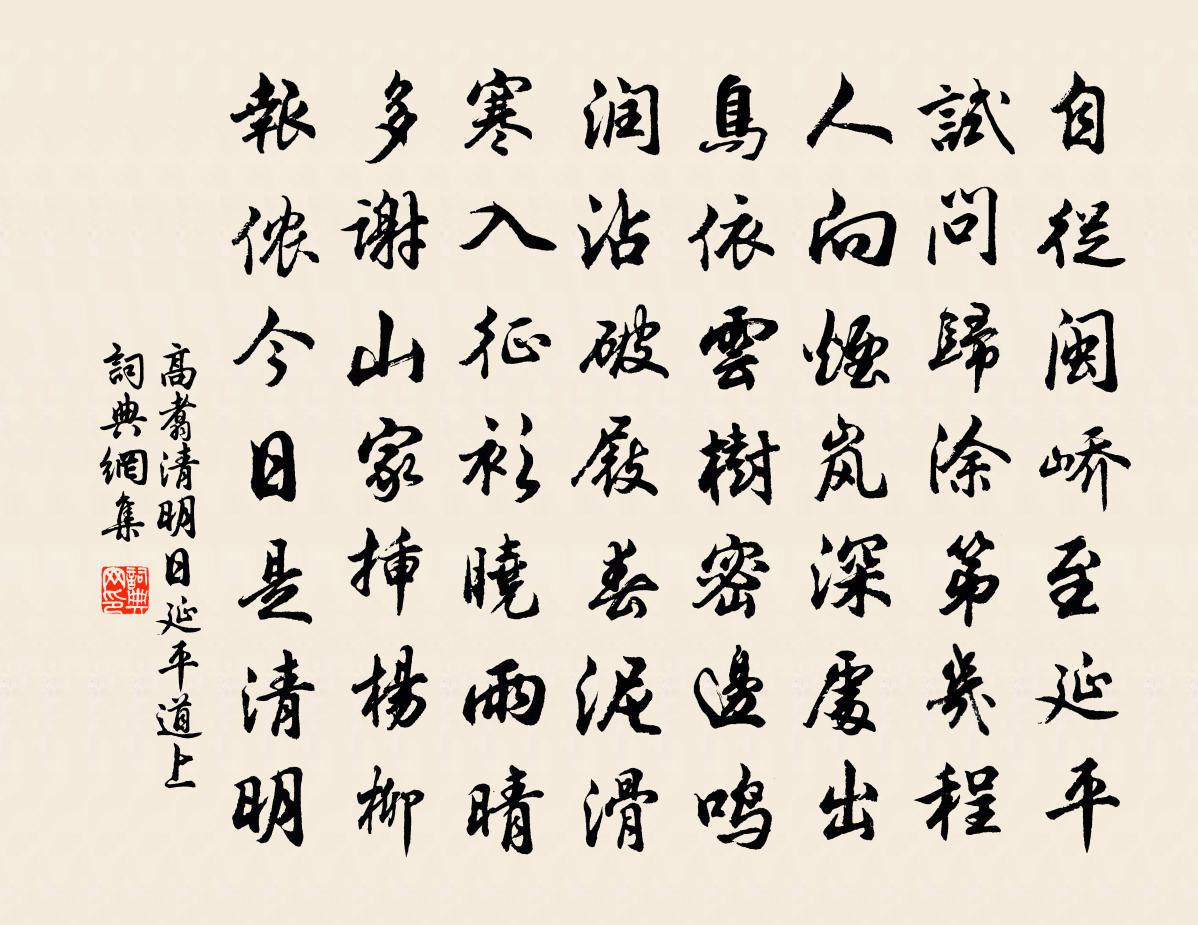 自從闽峤至延平
試問歸涂第幾程
人向煙岚深處出
鳥依雲樹密邊鸣
润沾破屐春泥滑
寒入征衫曉雨晴
多謝山家插楊柳
報侬今日是清明
高翥清明日延平道上
詞典網集